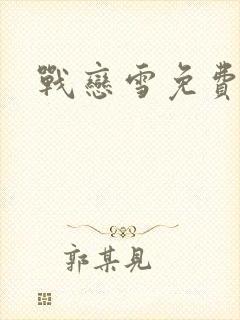 戰戀雪免費
郭某見